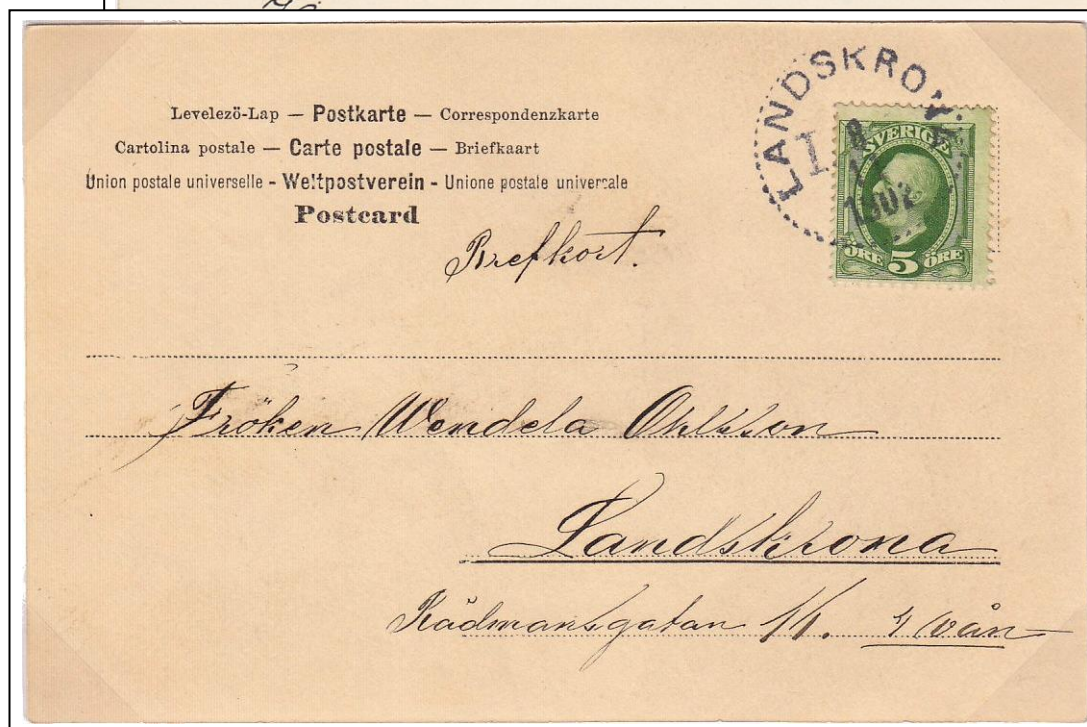 Levelezö-Lap — Postkarte — Correspondenzkarte
Cartolina postale — Carte postale — Briefkaart
Union postale universelle - Weltpostverein - Unione postale universale
Postcard
Brefkort.
LANDSKRONA
1902
SVERIGE
ÖRE 5 ÖRE
Fröken Wendela Ohlsson
Landskrona
Rådmansgatan